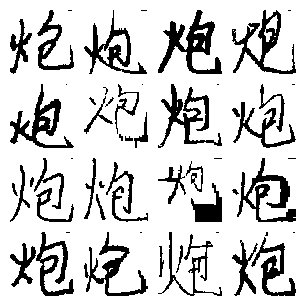 炮炮炮炮
炮炮炮炮
炮炮炮炮
炮炮炮炮